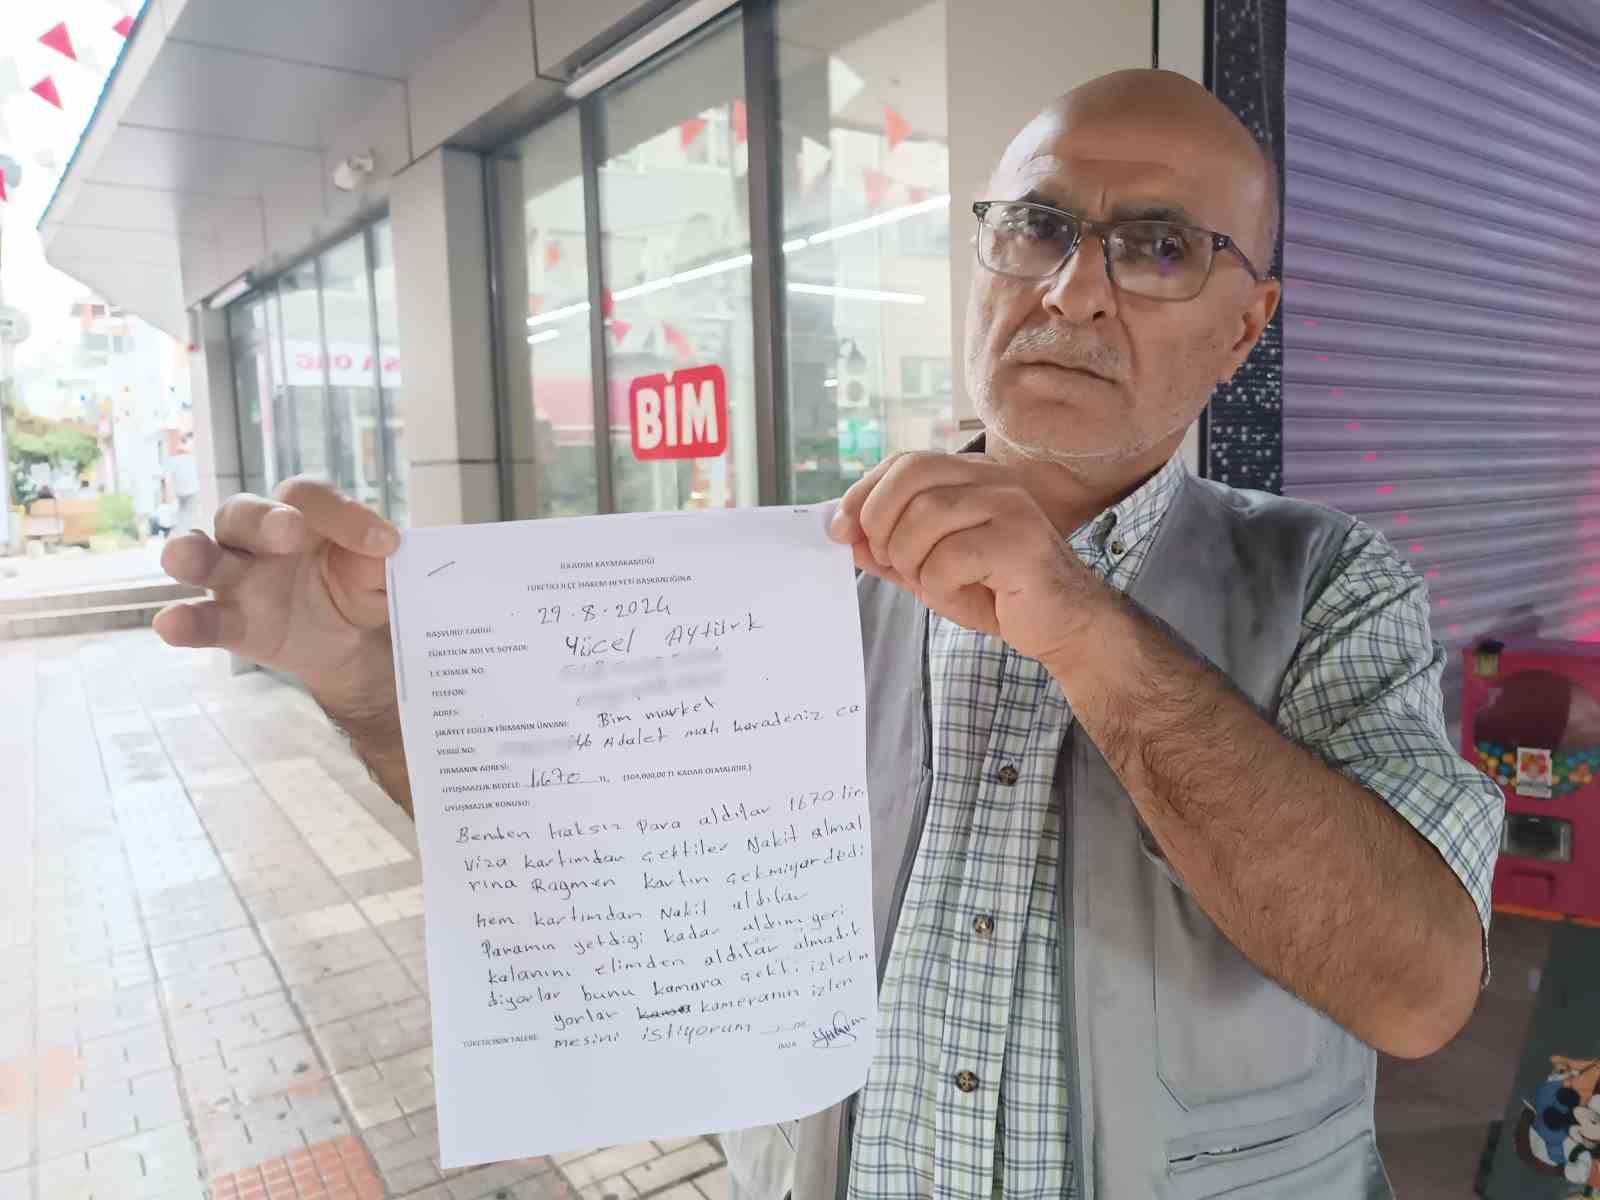 BİM
İLKADIM KAYMAKAMLIĞI
TÜKETİCİ İLÇE HAKEM HEYETİ BAŞKANLIĞINA
BAŞVURU TARİHİ: 29.8.2024
TÜKETİCİN ADI VE SOYADI: Yücel Aytürk
T.C KİMLİK NO:
TELEFON:
ADRES:
ŞİKAYET EDİLEN FİRMANIN ÜNVANI: Bim market
VERGİ NO:
FİRMANIN ADRESİ: Adalet mah karadeniz ca
UYUŞMAZLIK BEDELİ: 1.670 TL (104.000,00 TL KADAR OLMALIDIR.)
UYUŞMAZLIK KONUSU:
Benden haksız para aldılar 1670 lir
viza kartımdan çektiler Nakit almal
rına Rağmen kartın çekmiyor dedi
hem kartımdan Nakit aldılar
Paramın yetdiği kadar aldım geri
kalanını elimden aldılar almadık
diyorlar bunu kamara çekti izletm
yorlar kameranın izlen
TÜKETİCİNİN TALEBİ: mesini istiyorum
İMZA